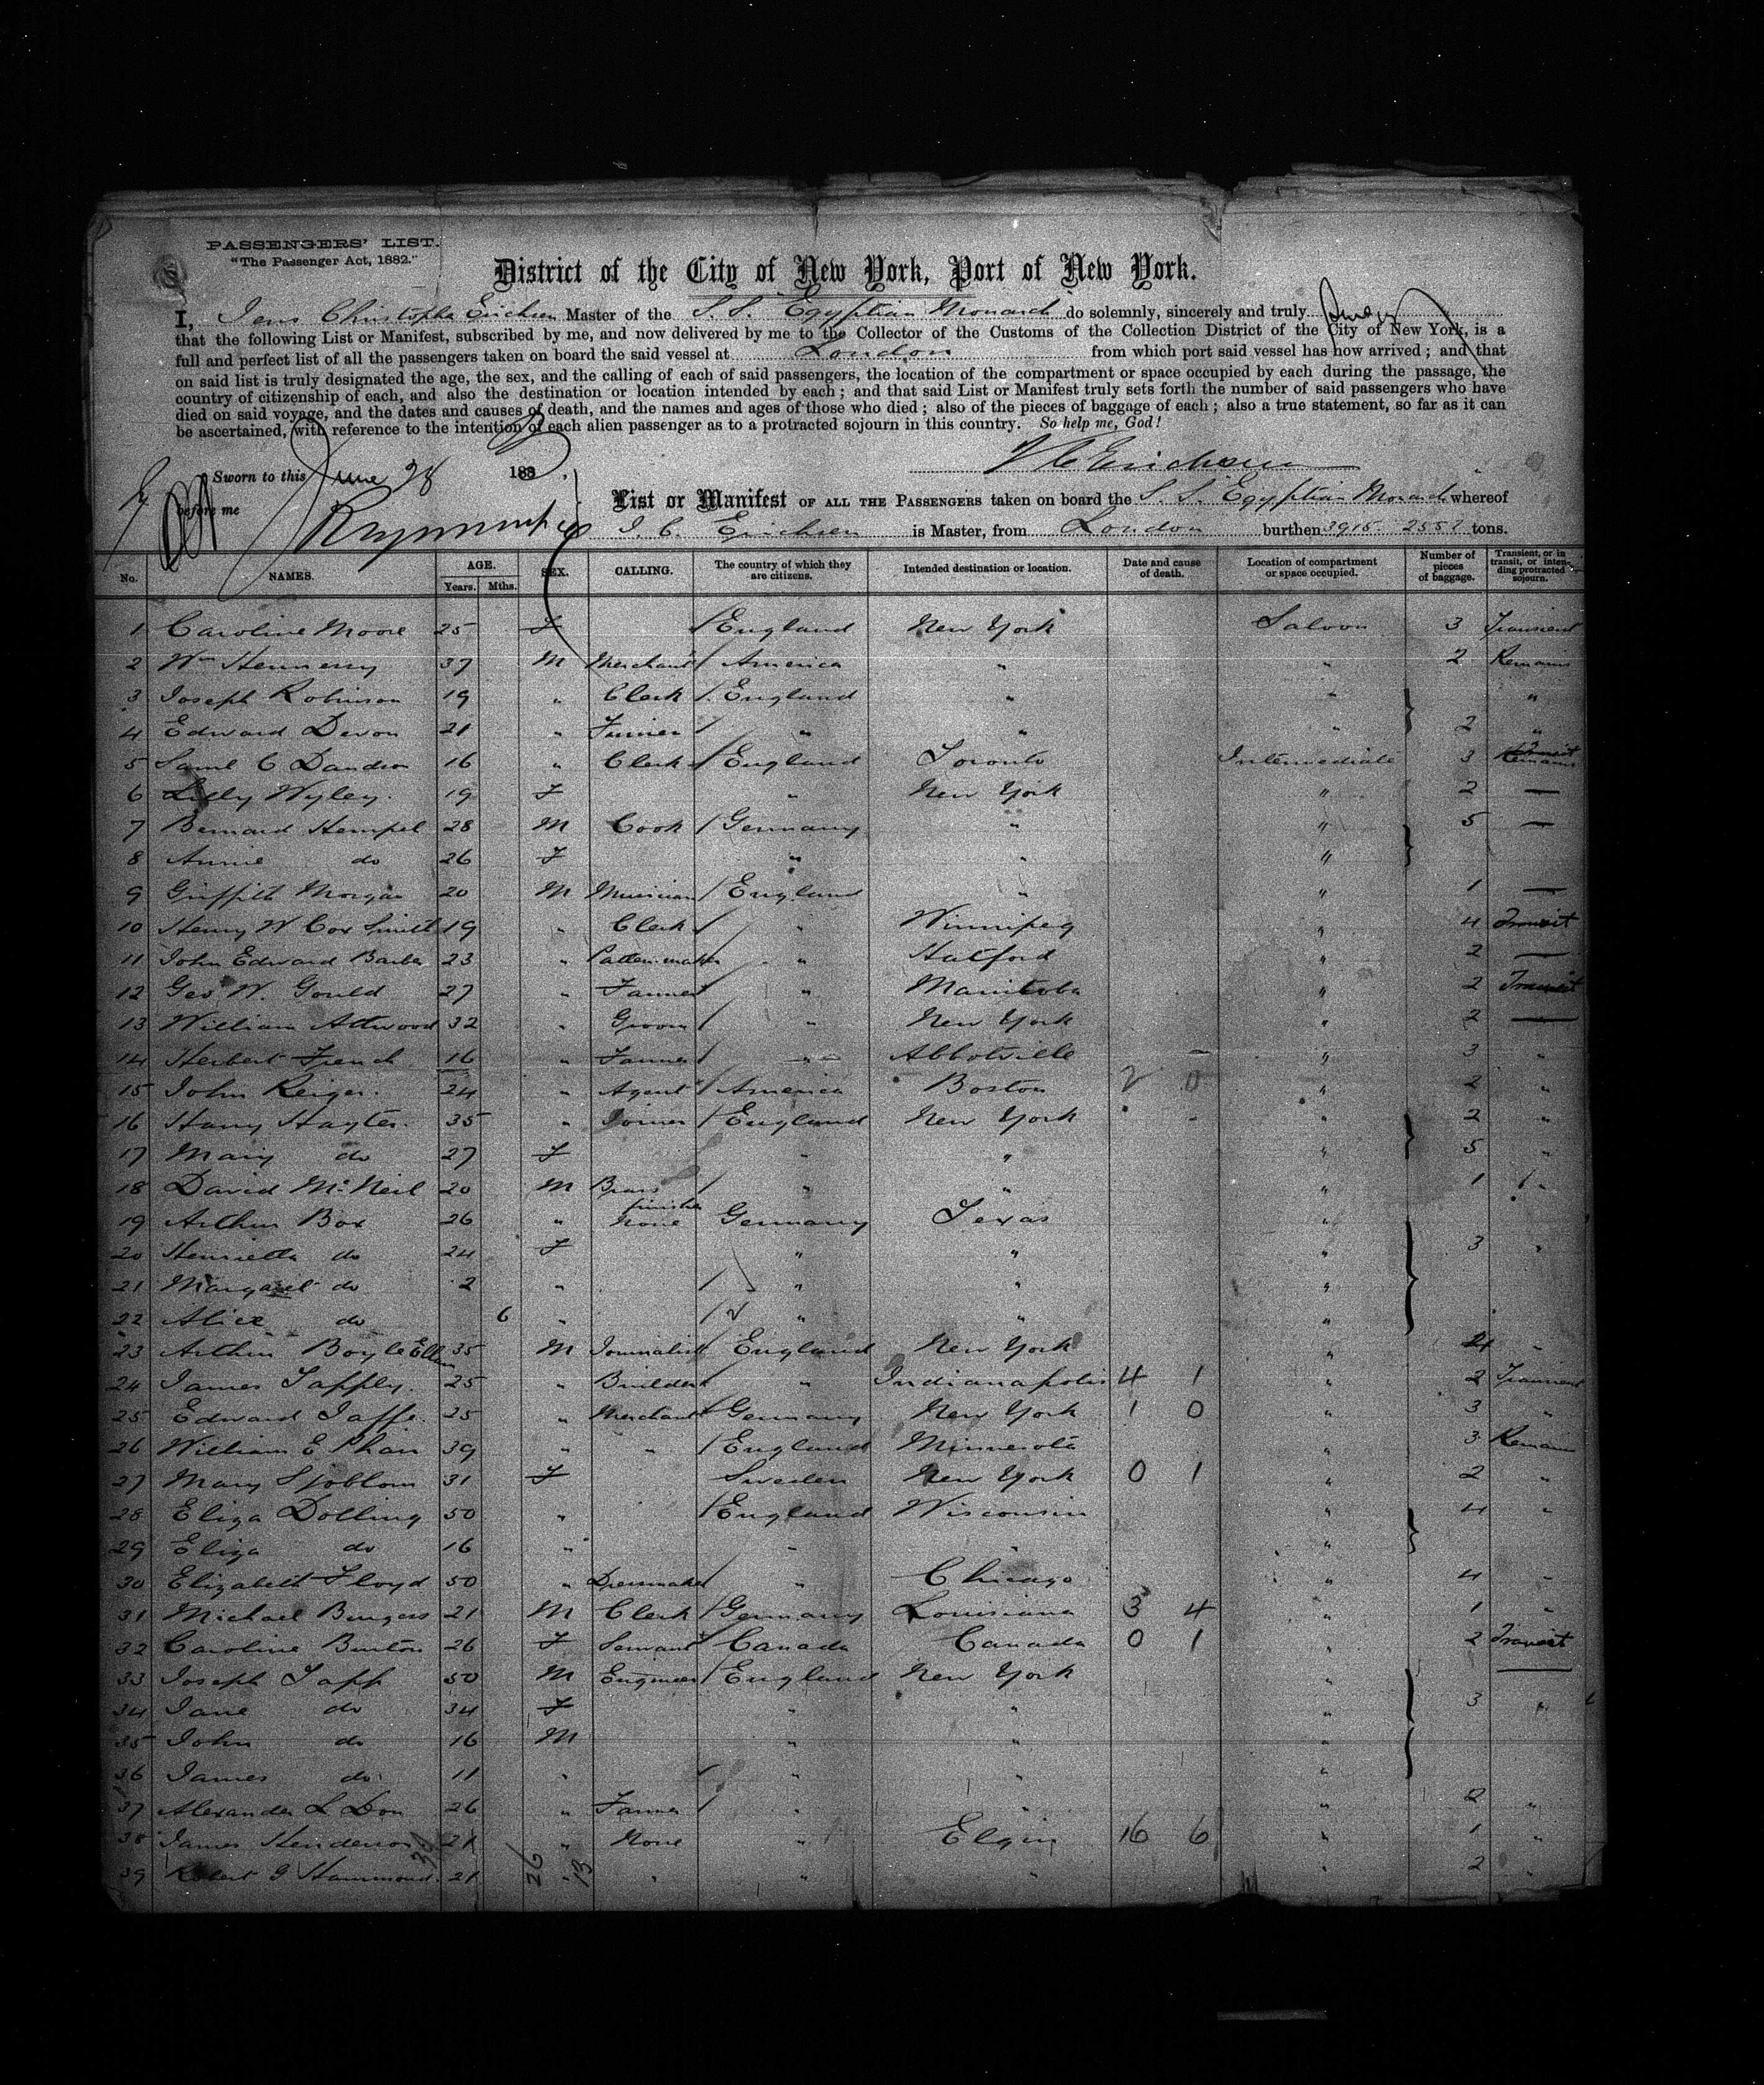 PASSENGERS' LIST.
"The Passenger Act, 1882."
District of the City of New York, Port of New York.
I, Jens Christopher Erichsen Master of the S. S. Egyptian Monarch do solemnly, sincerely and truly swear
that the following List or Manifest, subscribed by me, and now delivered by me to the Collector of the Customs of the Collection District of the City of New York, is a
full and perfect list of all the passengers taken on board the said vessel at London from which port said vessel has now arrived; and that
on said list is truly designated the age, the sex, and the calling of each of said passengers, the location of the compartment or space occupied by each during the passage, the
country of citizenship of each, and also the destination or location intended by each; and that said List or Manifest truly sets forth the number of said passengers who have
died on said voyage, and the dates and causes of death, and the names and ages of those who died; also of the pieces of baggage of each; also a true statement, so far as it can
be ascertained, with reference to the intention of each alien passenger as to a protracted sojourn in this country. So help me, God!
Sworn to this June 28 188 J C Erichsen
before me
List or Manifest OF ALL THE PASSENGERS taken on board the S. S. Egyptian Monarch whereof
J. C. Erichsen is Master, from London burthen 3915. 2557 tons.
No. NAMES. AGE. Years. Mths. SEX. CALLING. The country of which they are citizens. Intended destination or location. Date and cause of death. Location of compartment or space occupied. Number of pieces of baggage. Transient, or in transit, or intending protracted sojourn.
1 Caroline Moore 25 F England New York Saloon 3 Transient
2 Wm Hennessy 37 M Merchant America " " 2 Remains
3 Joseph Robinson 19 " Clerk England " " "
4 Edward Devon 21 " " " " 2 "
5 Saml C 16 " Clerk England Toronto Intermediate 3
6 Lilly Wyley. 19 F " New York " 2 —
7 Bernard Hempel 28 M Cook Germany " " 5 —
8 Annie do 26 F " " "
9 Griffith Morgan 20 M Musician England " " 1 —
10 Henry W Cox Smith 19 " Clerk " Winnipeg " 4 Transit
11 John Edward Barber 23 " Pattern maker " Hatford " 2 —
12 Geo W. Gould 27 " Farmer " Manitoba " 2 Transit
13 William Attwood 32 " Groom " New York " 2 —
14 Herbert French 16 " Farmer " Abbotville " 3 "
15 John Reiger. 24 " Agent America Boston 2 0 " 2 "
16 Harry Hayter. 35 " Joiner England New York " 2 "
17 Mary do 27 F " " " 5 "
18 David McNeil 20 M Brass finisher " " " 1 "
19 Arthur Box 26 " None Germany Texas "
20 Henrietta do 24 F " " " 3 "
21 Margaret do 2 " " " "
22 Alice do 6 " " " "
23 Arthur Boyle 35 M Journalist England New York " 4 "
24 James Tapply. 25 " Builder " Indianapolis 4 1 " 2 Transient
25 Edward Jaffe. 25 " Merchant Germany New York 1 0 " 3 "
26 William E Phair 39 " " England Minnesota " 3 Remain
27 Mary Sjoblom 31 F Sweden New York 0 1 " 2 "
28 Eliza Dolling 50 " England Wisconsin " 4 "
29 Eliza do 16 " " " "
30 Elizabeth Floyd 50 " Dressmaker " Chicago " 4 "
31 Michael Burgers 21 M Clerk Germany Louisiana 3 4 " 1 "
32 Caroline Burton 26 F Servant Canada Canada 0 1 " 2 Transit
33 Joseph Tapp 50 M Engineer England New York " —
34 Jane do 34 F " " " 3 "
35 John do 16 M " " "
36 James do 11 " " " "
37 Alexander L Don 26 " Farmer " " 2 "
38 James Henderson 21 " None " Elgin 16 6 " 1 "
39 Robert G Hammond. 21 " " " " " 2 "
26 13